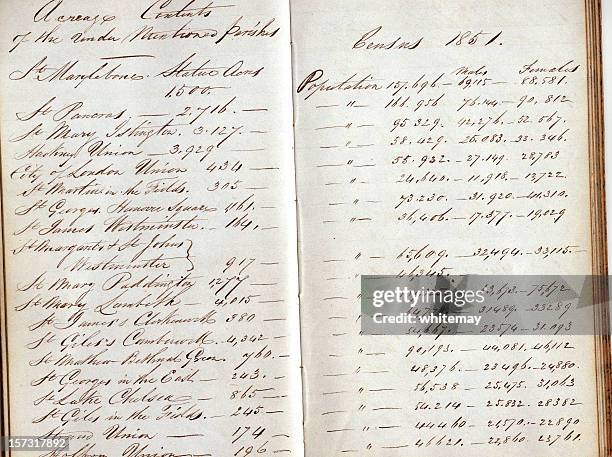 Acreage Contents
of the under Mentioned Parishes
St Marylebone. Statue Acres
1.500.
St Pancras — 2.716. —
St Mary Islington. 3.127. —
Hackney Union — 3.929
City of London Union 434 —
St Martin in the Fields. 305 —
St Georges Hanover Square 1161. —
St James Westminster — 164. —
St Margarets & St Johns
Westminster 917 —
St Mary Paddington 1277 —
St Mary Lambeth — 4,015 —
St James's Clerkenwell 380
St Giles's Camberwell — 4,342 —
St Mathew Bethnal Green 760. —
St Georges in the East — 243. —
St Luke Chelsea — 865 —
St Giles in the Fields. — 245 —
Union — 174 —
Holborn Union — 196 —
Census 1851.
Males Females
Population 157.696 — 69115 — 88,581.
— " — 166.956 76.144 — 90,812
— " — 95.329. 42.276 — 53.
— " — 58.429. 25.083. 33.346.
— " — 55.932. — 27.149. 28,783
— " — 24,640. — 11,918. — 12,722.
— " — 73.230. — 31.920. — 41,310.
— " — 36,406. — 17.377. — 19,029
— " — 65,609. — 32,494. — 33,115 —
— " — 46,305.
— " — 75672
— " — 31489. — 33289
— " — 23574 — 31.093
— " — 90,193. — 44,081. 46,112
— " — 48,376. — 23.496. — 24880.
— " — 56,538 — 25,475. 31,063
— " — 54.214 — 25.832. 28382
— " — 44460 — 21,570. — 22890
— " — 46621. — 22,860. 23,761.
gettyimages
Credit: whitemay
157317892